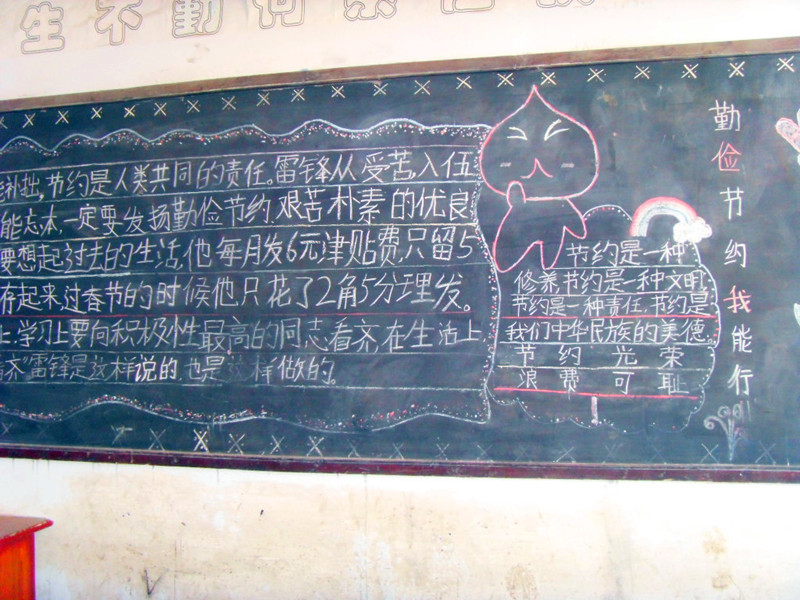 生不勤何
补拙,节约是人类共同的责任。雷锋从受苦,入伍
能忘本,一定要发扬勤俭节约,艰苦朴素的优良
要想起过去的生活,他每月发6元津贴费,只留5
存起来过春节的时候他只花了2角5分理发。
上,学习上要向积极性最高的同志看齐,在生活上
齐"雷锋是这样说的,也是这样做的。
节约是一种
修养,节约是一种文明,
节约是一种责任,节约是
我们中华民族的美德。
节约光荣
浪费可耻
勤俭节约我能行